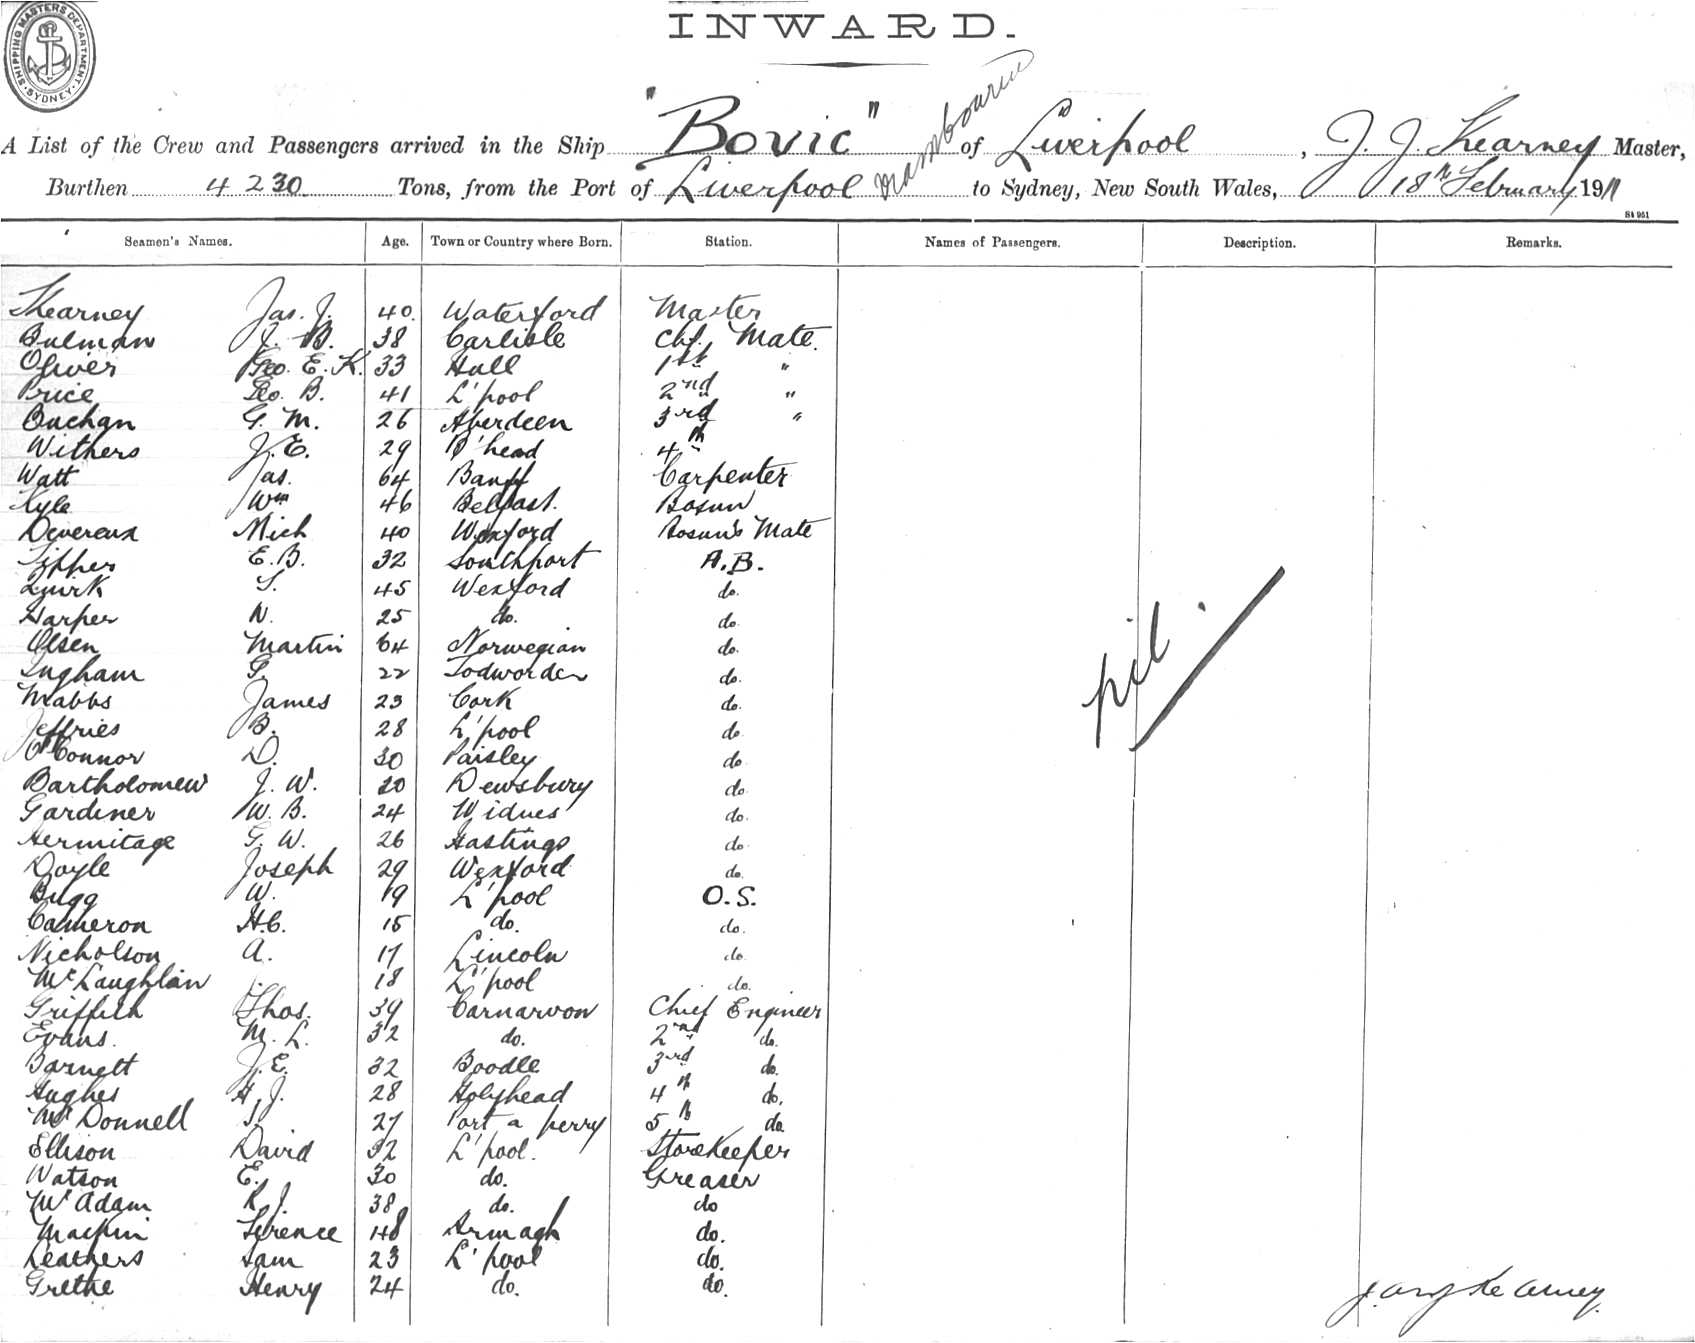 SHIPPING MASTERS DEPARTMENT. SYDNEY.
INWARD.
A List of the Crew and Passengers arrived in the Ship "Bovic" of Liverpool, J. J. Kearney Master,
Burthen 4230 Tons, from the Port of Liverpool to Sydney, New South Wales, 18th February 1911
St 951
Seamen's Names. Age. Town or Country where Born. Station. Names of Passengers. Description. Remarks.
Kearney Jas. J. 40. Waterford Master
Bulman J. B. 38 Carlisle Chf. Mate.
Oliver Geo. E. K. 33 Hull 1st "
Price Geo. B. 41 L'pool 2nd "
Buchan G. M. 26 Aberdeen 3rd "
Withers J. E. 29 B'head 4th
Watt Jas. 64 Banff Carpenter
Kyle Wm 46 Belfast. Bosun
Devereux Mich 40 Wexford Bosun's Mate
E. B. 32 Southport A.B.
Quirk 45 Wexford do.
Harper N. 25 do. do.
Olsen Martin 64 Norwegian do.
Ingham G. 22 Todworden do.
Mabbs James 23 Cork do.
Jeffries B. 28 L'pool do
O'Connor D. 30 Paisley do
Bartholomew J. W. 20 Dewsbury do
Gardiner W. B. 24 Widnes do.
Hermitage G. W. 26 Hastings do
Doyle Joseph 29 Wexford do.
Bugg W. 19 L'pool O.S.
Cameron H.C. 15 do. do.
Nicholson A. 17 Lincoln do.
McLaughlin 18 L'pool do.
Griffith Thos. 39 Carnarvon Chief Engineer
Evans. M. L. 32 do. 2nd do.
Barnett J. E. 32 Boodle 3rd do.
Hughes H. J. 28 Holyhead 4th do.
McDonnell 27 Port a perry 5th do
Ellison David 32 L'pool. Storekeeper
Watson E. 30 do. Greaser
McAdam R. J. 38 do. do
Terence 48 Armagh do.
Leathers Sam 23 L'pool do.
Grethe Henry 24 do. do.
nil.
Kearney.